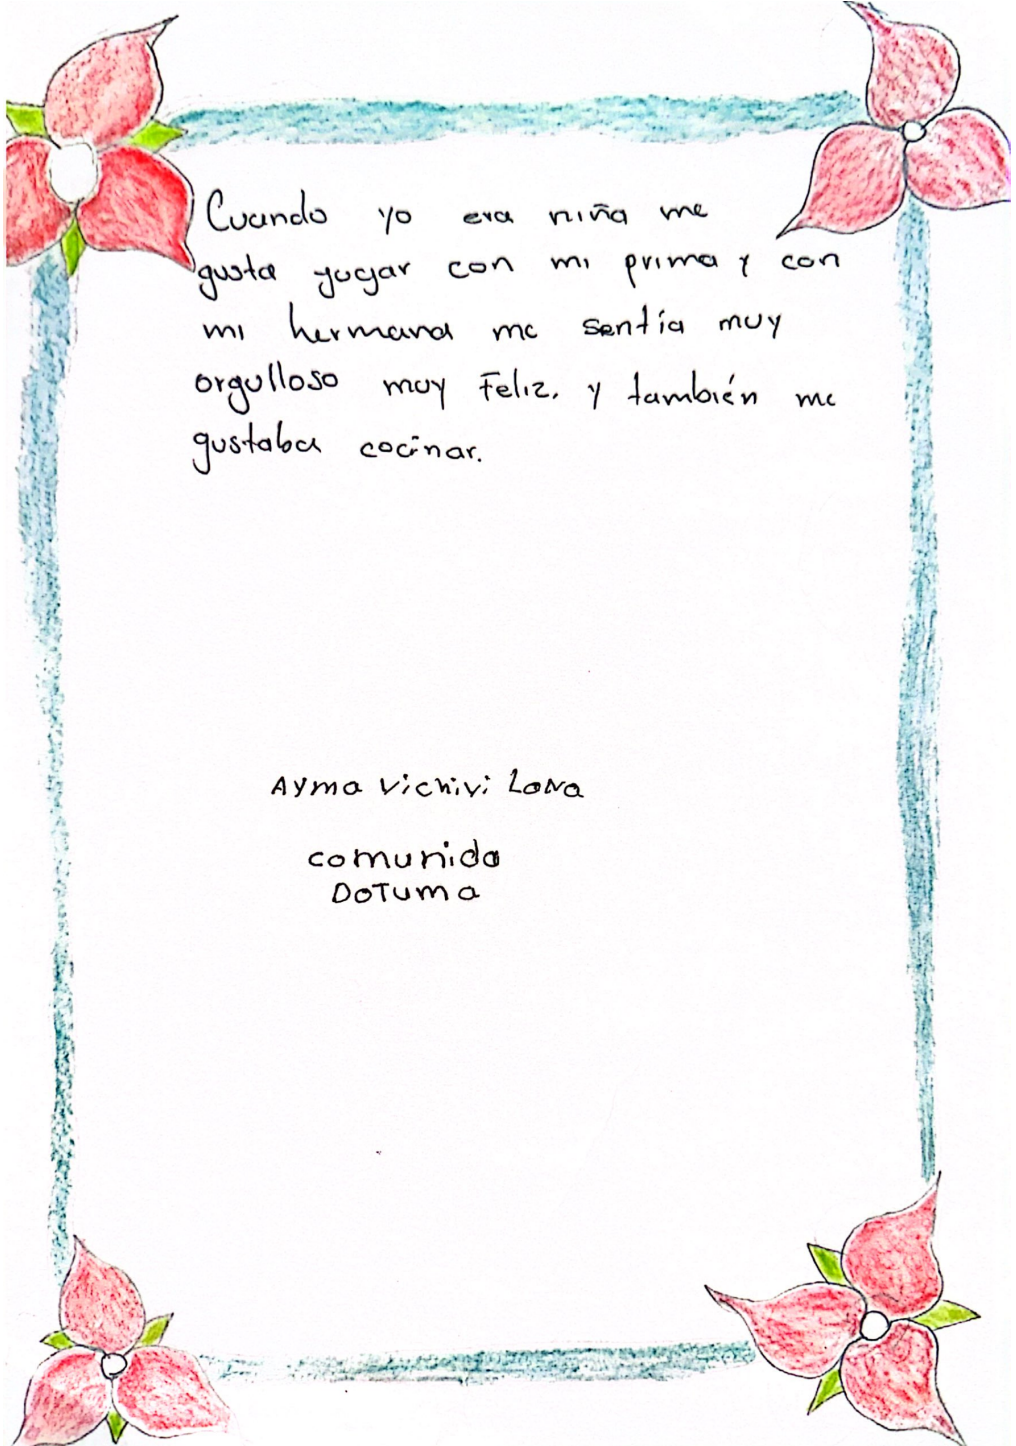 Cuando yo era niña me
gusta yugar con mi prima y con
mi hermana me sentía muy
orgulloso muy Feliz. y también me
gustaba cocinar.
Ayma Vichivi Lona
comunida
DOTUMA